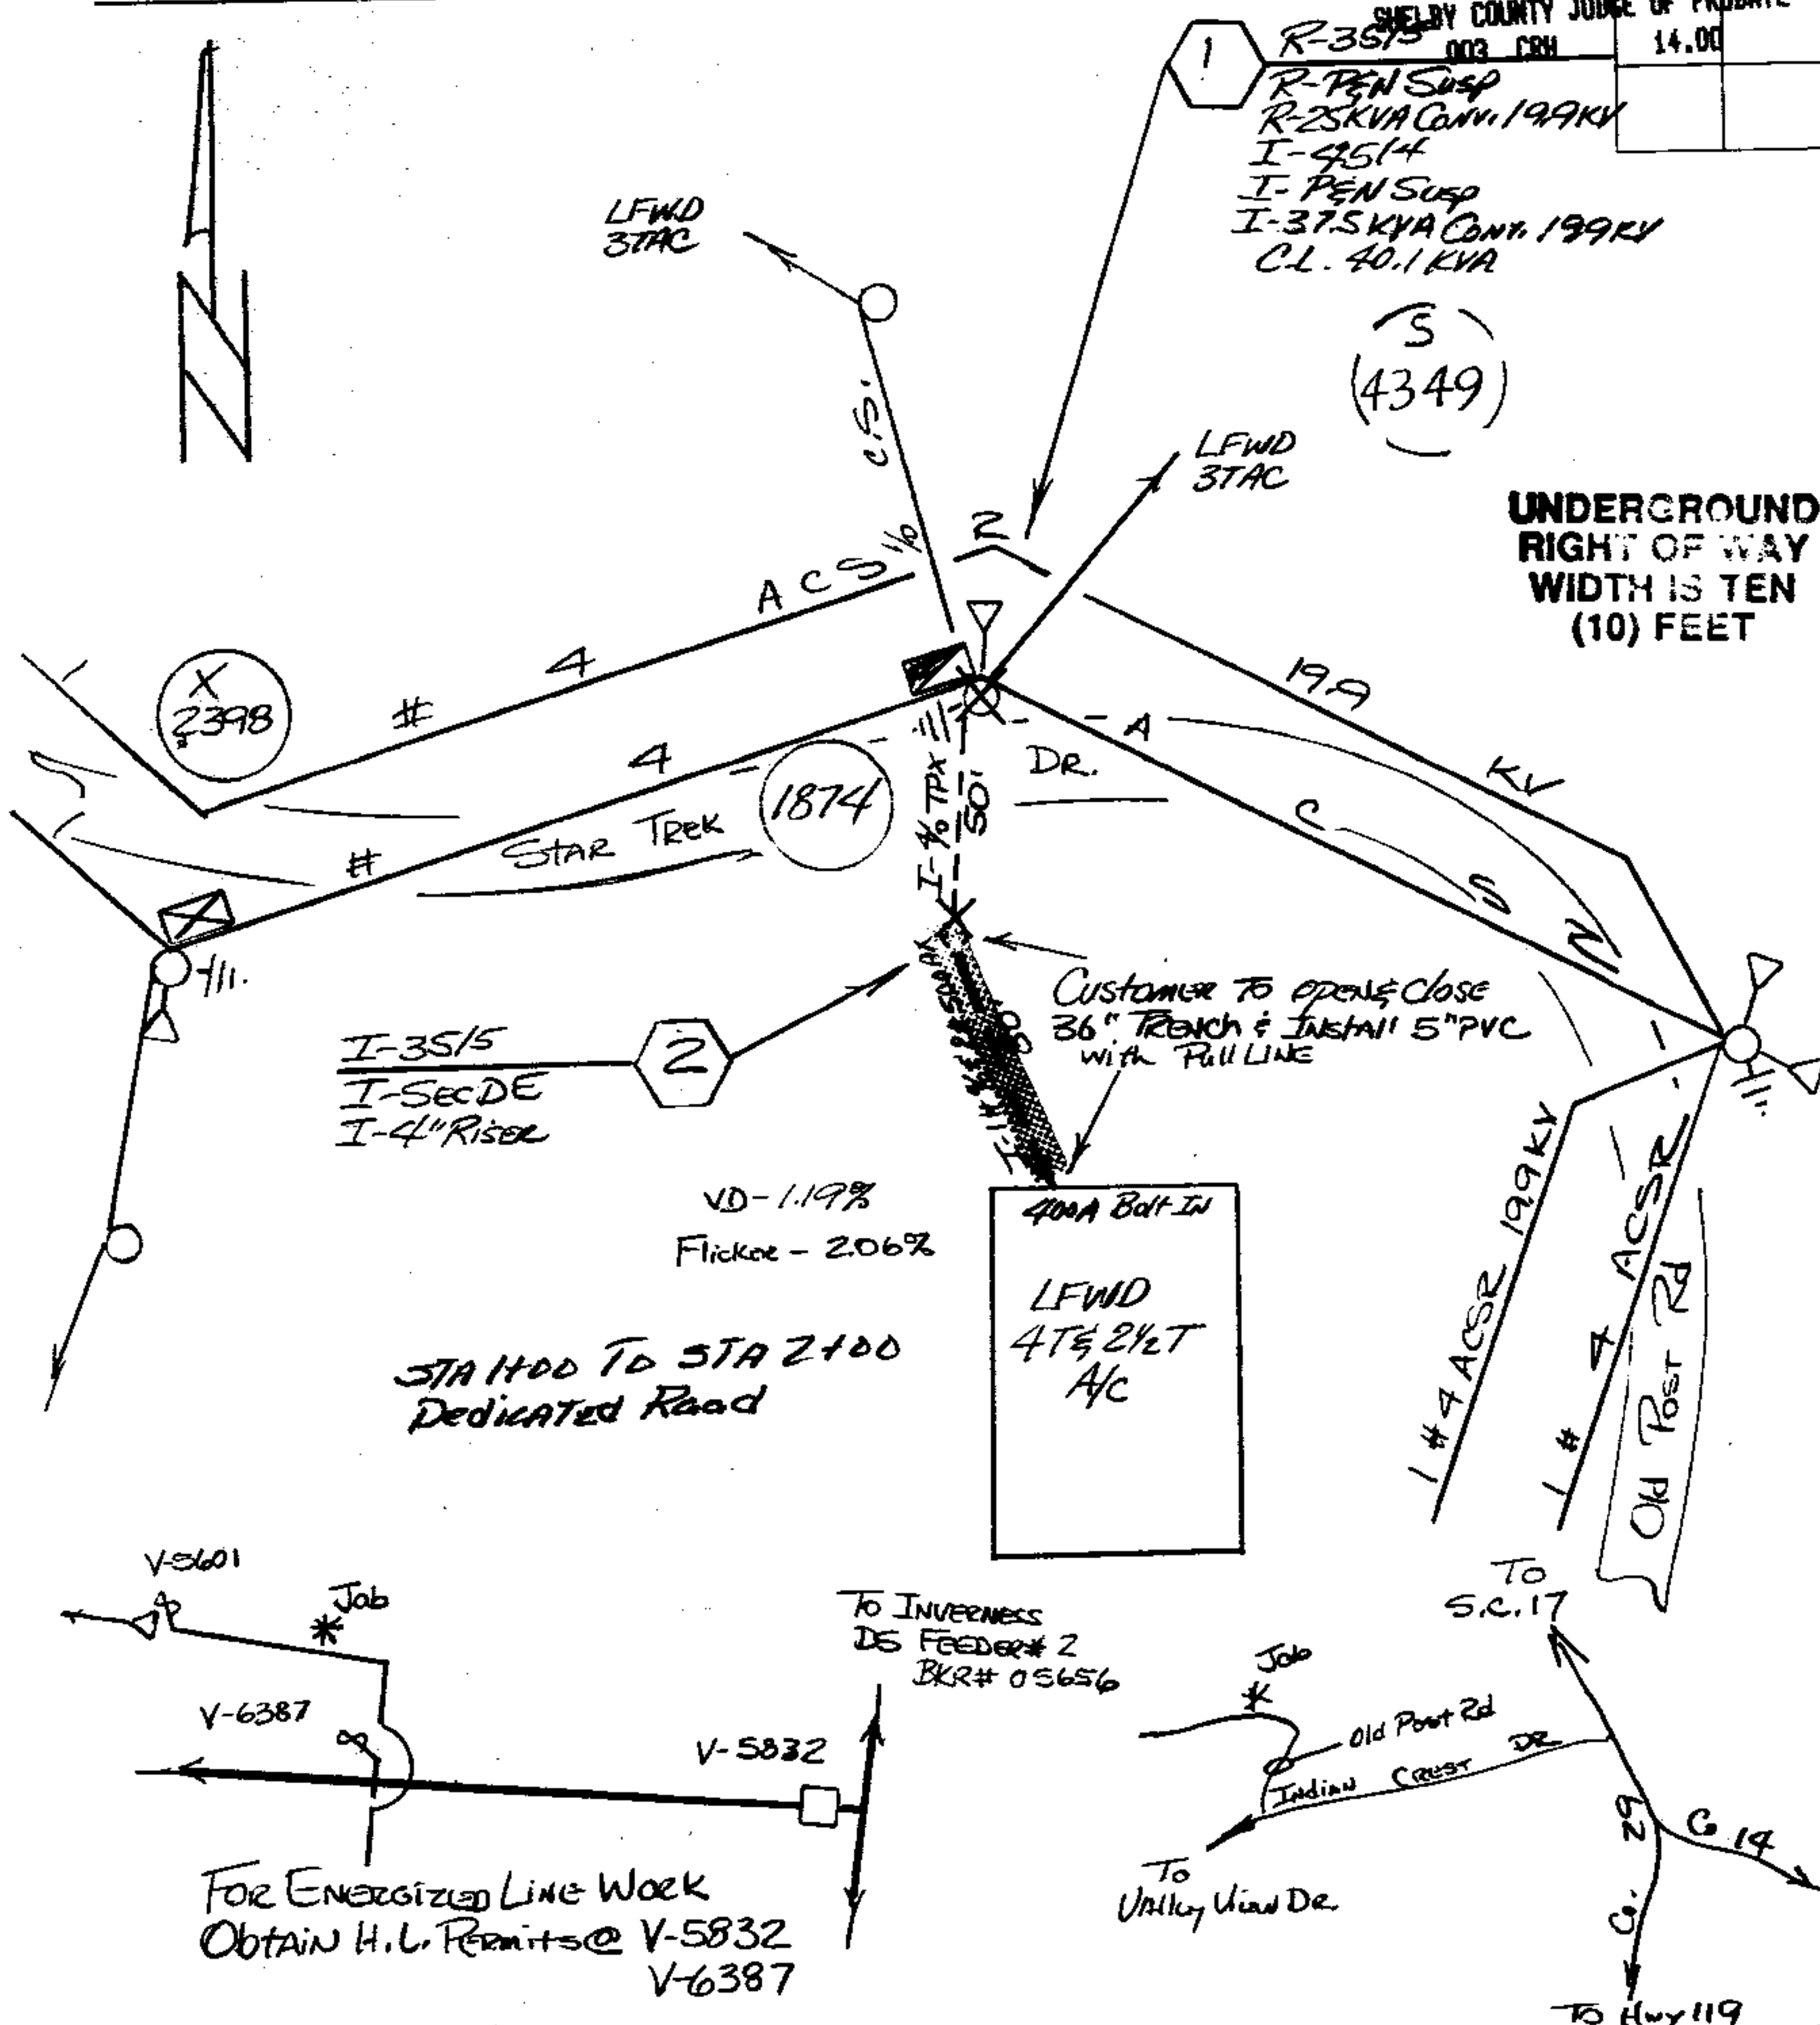 SHELBY COUNTY JUDGE OF PROBATE
003 CRH 14.00
1
R-35/5
R-P&N Susp
R-25KVA Conv. 19.9KV
I-45/4
I-P&N Susp
I-37.5 KVA Conv. 19.9KV
C.L. 40.1 KVA
LFWD
3TAC
S
4349
C.S.
LFWD
3TAC
UNDERGROUND
RIGHT OF WAY
WIDTH IS TEN
(10) FEET
N
1 # 4 ACSR 19.9 KV
X
2398
1 # 4 ACSR N
1874
STAR TREK DR.
I-4/0 TPX
50'
Customer To open & Close
36" Trench & Install 5" PVC
with Pull LINE
2
I-35/5
I-Sec DE
I-4" Riser
VD-1.19%
Flicker - 2.06%
400A Bolt IN
LFWD
4T & 2½T
A/C
STA 1+00 To STA 2+00
Dedicated Road
1 # 4 ACSR 19.9 KV
1 # 4 ACSR
Old Post Rd
V-5601
Job
V-6387
V-5832
To INVERNESS
DS FEEDER# 2
BKR# 05656
FOR ENERGIZED LINE WORK
Obtain H.L. Permits @ V-5832
V-6387
To
S.C.17
Job
Old Post Rd
Indian CREST DR
To
Valley View Dr.
Co. 29
Co 14
To Hwy 119